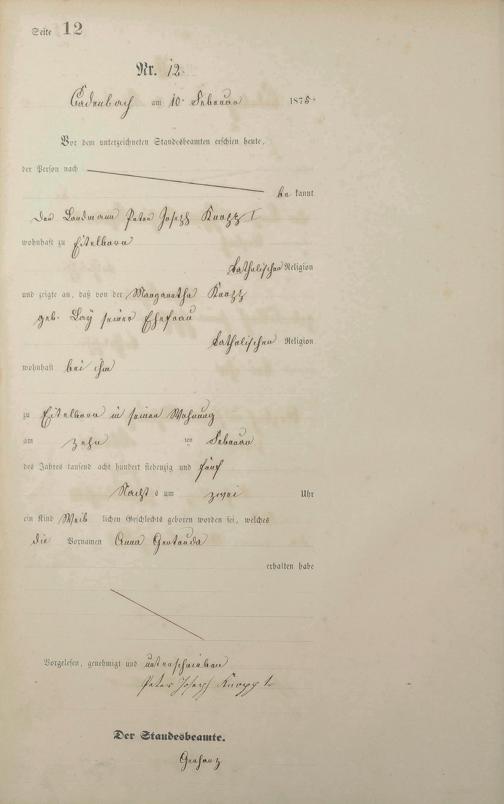 Seite 12
Nr. 12.
Cadenbach am 10. Februar 1875.
Vor dem unterzeichneten Standesbeamten erschien heute,
der Person nach
bekannt
Der Landmann Peter Joseph Knopp I
wohnhaft zu Eitelborn
katholischen Religion
und zeigte an, daß von der Margaretha Knopp
geb. Lay seiner Ehefrau
katholischen Religion
wohnhaft bei ihm
zu Eitelborn in seiner Wohnung
am zehn ten Februar
des Jahres tausend acht hundert siebenzig und fünf
Nachts um zwei Uhr
ein Kind Weiblichen Geschlechts geboren worden sei, welches
die Vornamen Anna Gertruda
erhalten habe
Vorgelesen, genehmigt und unterschrieben
Peter Joseph Knopp 1.
Der Standesbeamte.